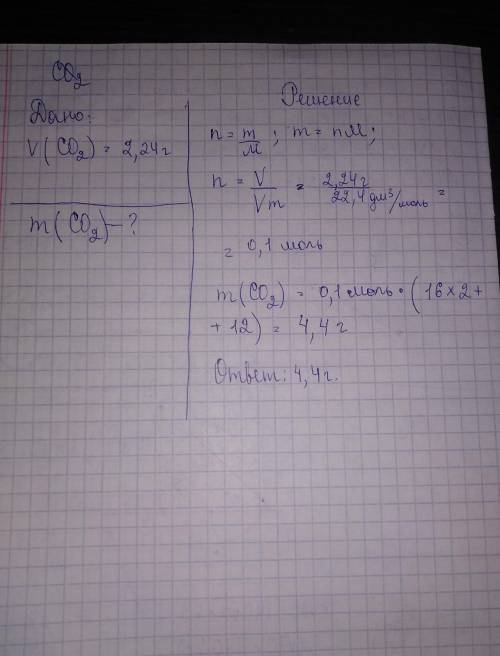 CO₂
Дано:
V(CO₂) = 2,24г
m(CO₂) – ?
Решение
n = m/M ; m = nM;
n = V/Vm = 2,24г/22,4 дм³/моль =
= 0,1 моль
m(CO₂) = 0,1 моль · (16×2+
+ 12) = 4,4 г
Ответ: 4,4г.